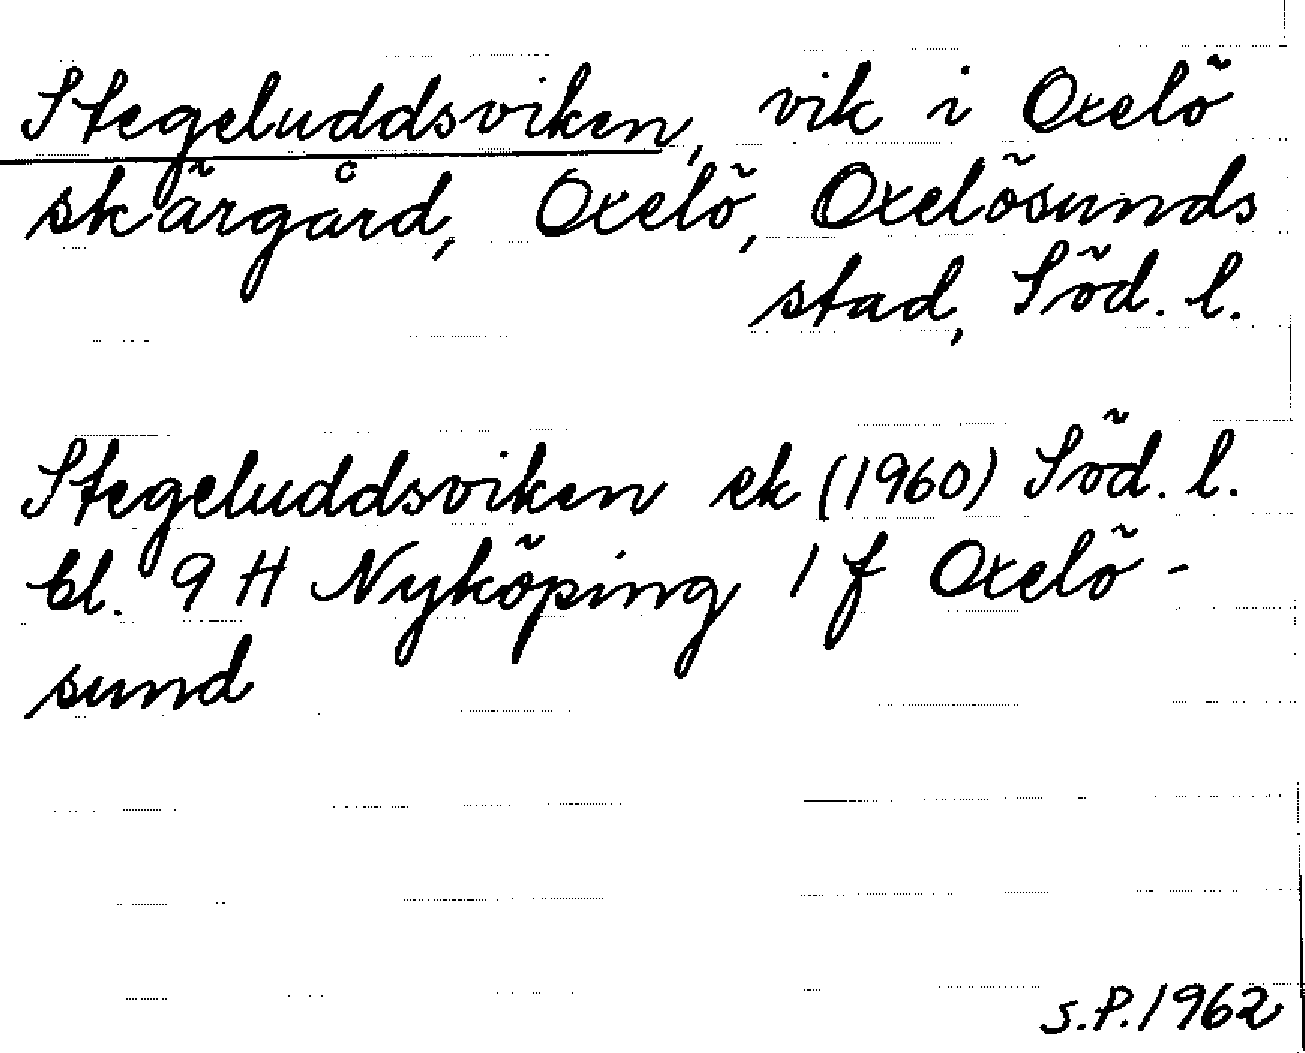 Stegeluddsviken, vik i Oxelö
skärgård, Oxelö, Oxelösunds
stad, Söd. l.
Stegeluddsviken ek (1960) Söd. l.
bl. 9 H Nyköping 1 f Oxelö-
sund
S.P. 1962